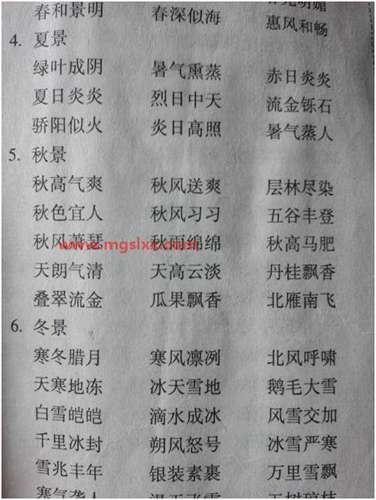 春和景明 春深似海 惠风和畅
4. 夏景
绿叶成阴 暑气熏蒸 赤日炎炎
夏日炎炎 烈日中天 流金铄石
骄阳似火 炎日高照 暑气蒸人
5. 秋景
秋高气爽 秋风送爽 层林尽染
秋色宜人 秋风习习 五谷丰登
秋风萧瑟 秋雨绵绵 秋高马肥
www.mgslxx.com
天朗气清 天高云淡 丹桂飘香
叠翠流金 瓜果飘香 北雁南飞
6. 冬景
寒冬腊月 寒风凛冽 北风呼啸
天寒地冻 冰天雪地 鹅毛大雪
白雪皑皑 滴水成冰 风雪交加
千里冰封 朔风怒号 冰雪严寒
雪兆丰年 银装素裹 万里雪飘
寒气袭人